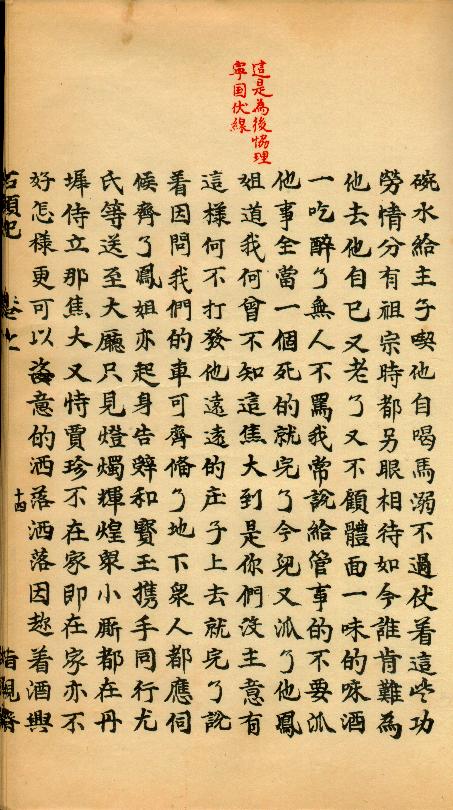 這是為後協理
寧国伏線
碗水給主子喫他自喝馬溺不過伏着這些功
勞情分有祖宗時都另眼相待如今誰肯難為
他去他自己又老了又不顧體面一味的味酒
一吃醉了無人不罵我常說給管事的不要派
他事全當一個死的就完了今兒又派了他鳳
姐道我何曾不知這焦大到是你們沒主意有
這樣何不打發他遠遠的庄子上去就完了說
着因問我們的車可齊備了地下衆人都應伺
候齊了鳳姐亦起身告辤和寶玉携手同行尤
氏等送至大廳只見燈燭輝煌衆小厮都在丹
墀侍立那焦大又恃賈珍不在家即在家亦不
好怎樣更可以恣意的洒落洒落因趂着酒興
石頭記 卷七 十四 脂硯齋